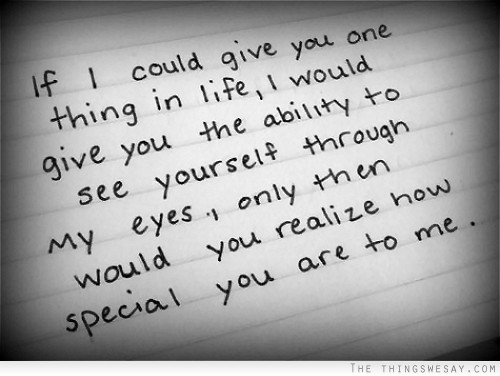 If I could give you one
thing in life, I would
give you the ability to
see yourself through
My eyes, only then
would you realize how
special you are to me.
THE THINGSWESAY.COM